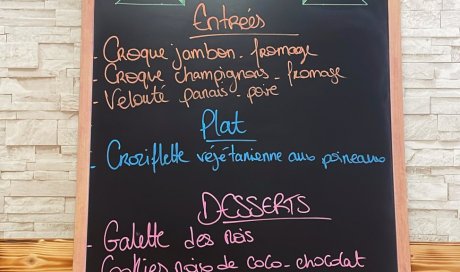 Entrées
- Croque jambon - fromage
- Croque champignons - fromage
- Velouté panais - poire
Plat
- Croziflette végétarienne aux poireaux
DESSERTS
- Galette des Rois
- Cookies noix de coco - chocolat